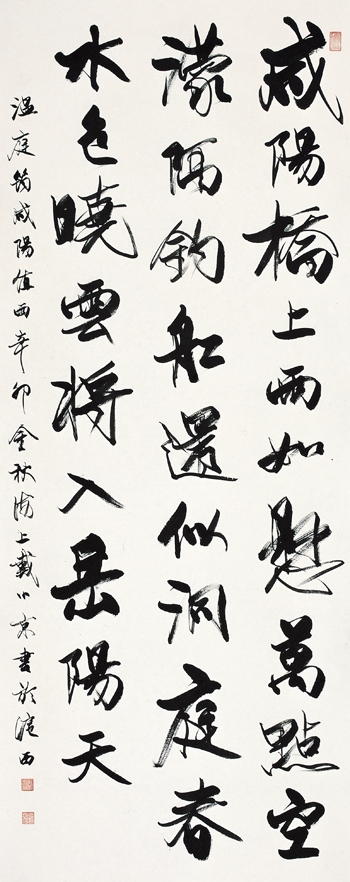 咸陽橋上雨如懸萬點空
濛隔釣船還似洞庭春
水色曉雲將入岳陽天
温庭筠咸陽值雨辛卯金秋海上戴小京書於滬西